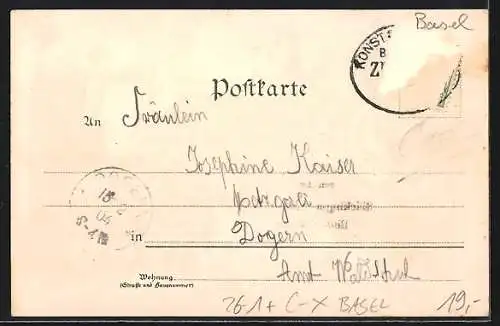 Basel
KONST
B
Z
Postkarte
An Fräulein
Josephine Kaiser
Metzgali
in Dogern
Amt Waldshut
Wohnung
(Straße und Hausnummer)
261+ C-X BASEL 19,-